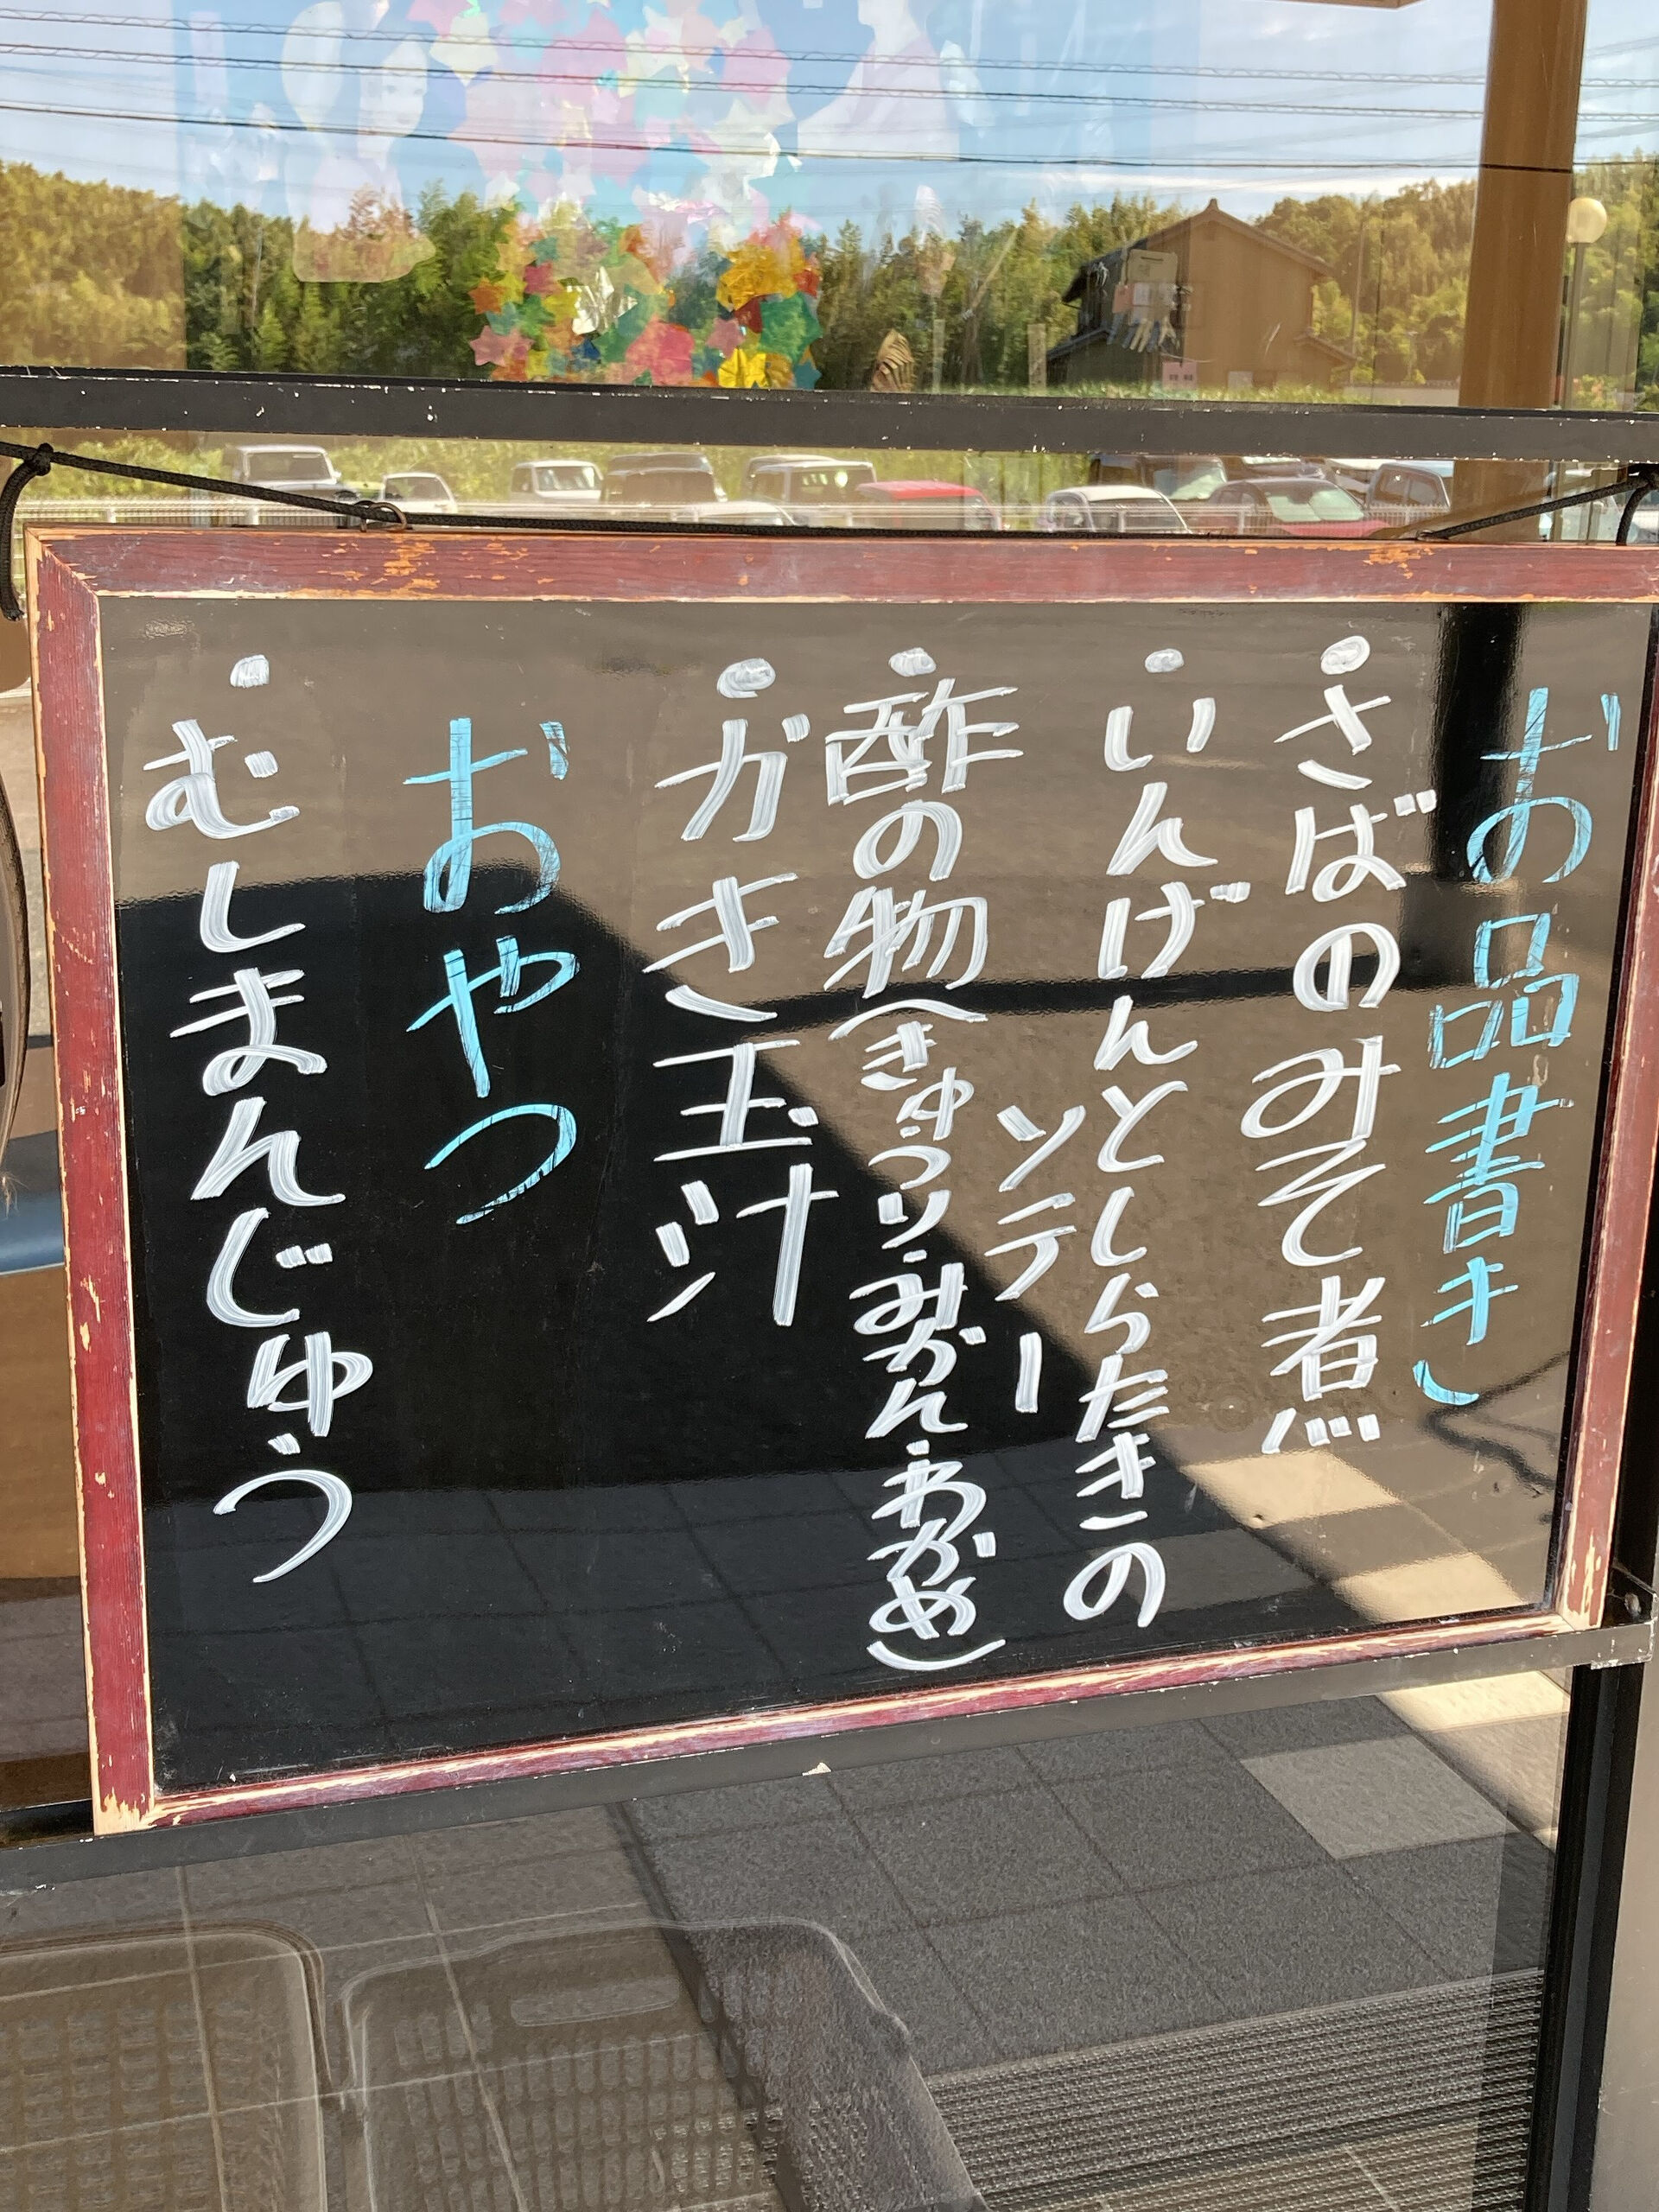 お品書き
・さばのみそ煮
・いんげんとしらたきの
ソテー
・酢の物(きゅうり・みかん・わかめ)
・かき玉汁
おやつ
・むしまんじゅう